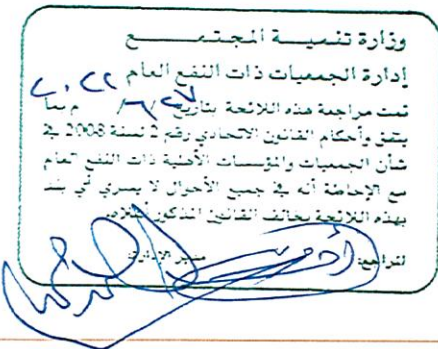 وزارة تنميـــة المجتمـــــع
إدارة الجمعيات ذات النفع العام
تمت مراجعة هذه اللائحة بتاريخ ٢٠٢٢/٦/ م بما
يتفق وأحكام القانون الاتحادي رقم 2 لسنة 2008 في
شأن الجمعيات والمؤسسات الأهلية ذات النفع العام
مع الإحاطة أنه في جميع الأحوال لا يسري أي بند
بهذه اللائحة يخالف القانون المذكور أعلاه
المراجع: مدير الإدارة